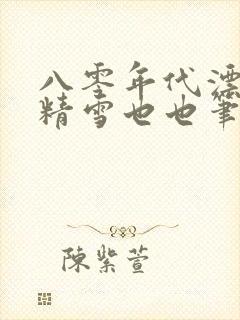 八零年代漂
精雪也也筆
陳紫萱